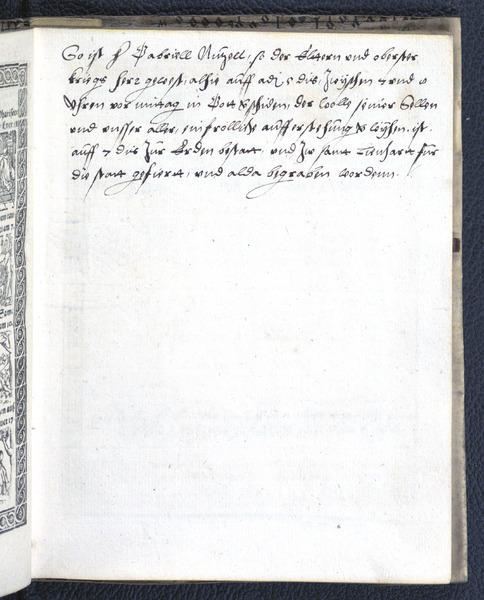 So ist h Gabriell Nützell, so der Elltern und oberster
kriegs herr gewest, alhie auff adj 5 dis zwyschen 7 und 8
Uhren vor mittag in Gott verschiden, der wolle seiner Sellen
und unsser aller, ein frolliche aufferstehung verleyhen. ist
auff 7 dis zur Erden bestatt, und zu sant Lienhartt für
die statt gefüertt, und alda begraben worden.